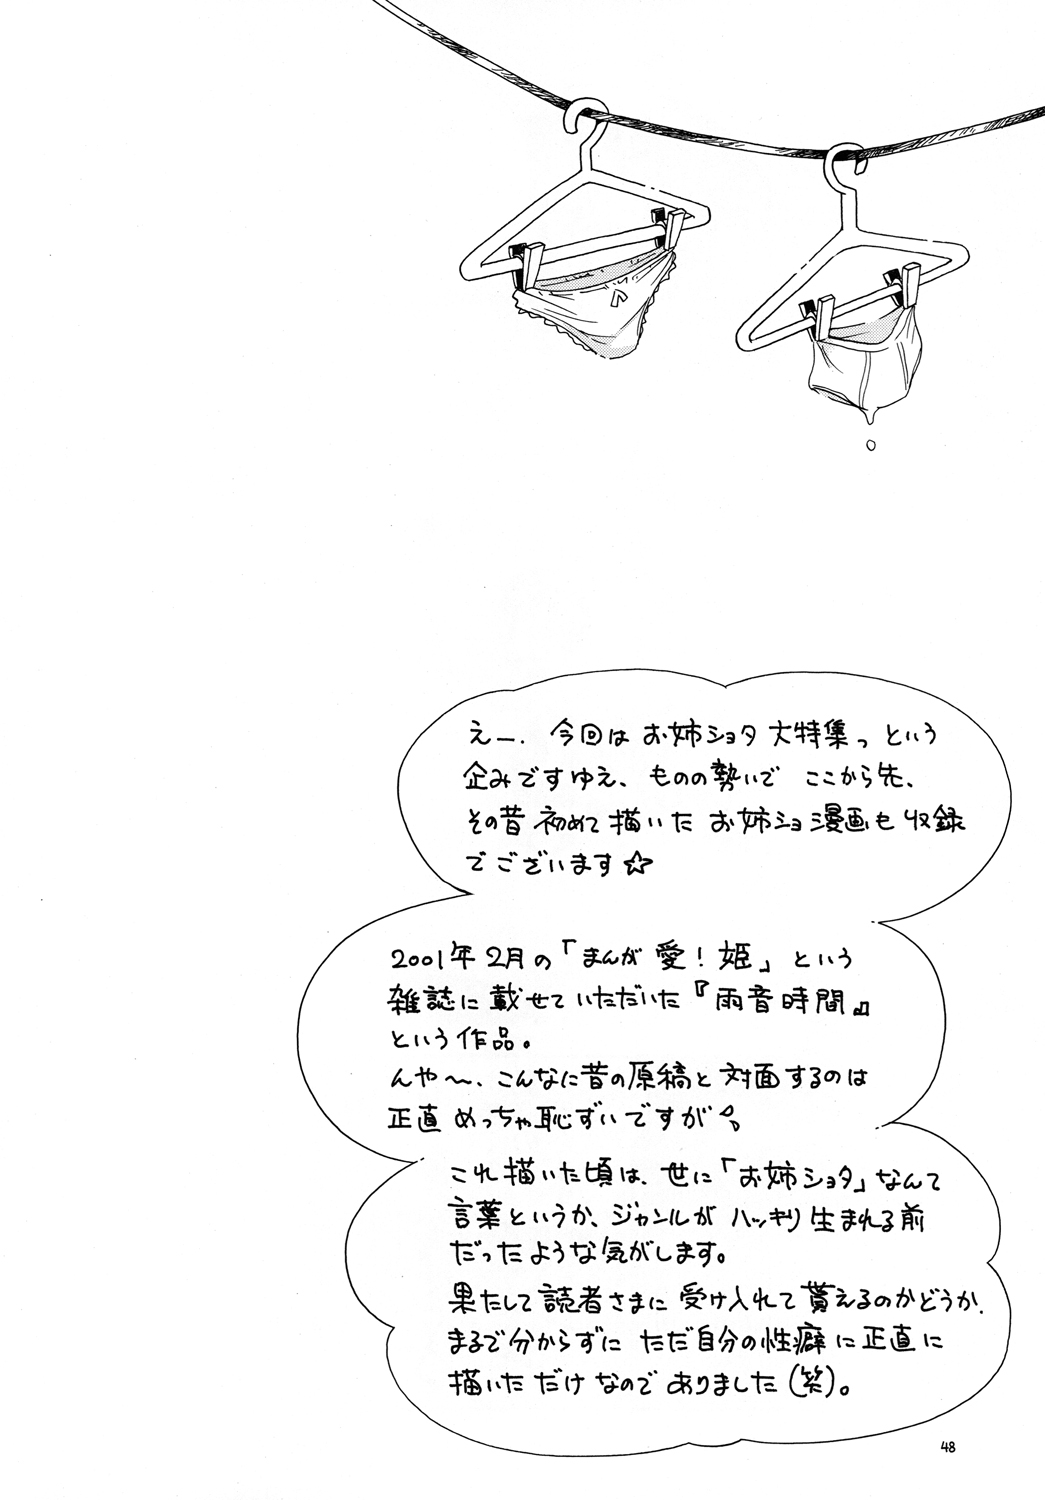 えー、今回はお姉ショタ大特集っという
企みですゆえ、ものの勢いでここから先、
その昔初めて描いたお姉ショ漫画も収録
でございます☆
2001年2月の「まんが愛！姫」という
雑誌に載せていただいた『雨音時間』
という作品。
んや〜、こんなに昔の原稿と対面するのは
正直めっちゃ恥ずいですが
これ描いた頃は、世に「お姉ショタ」なんて
言葉というか、ジャンルがハッキリ生まれる前
だったような気がします。
果たして読者さまに受け入れて貰えるのかどうか、
まるで分からずにただ自分の性癖に正直に
描いただけなのでありました(笑)。
48